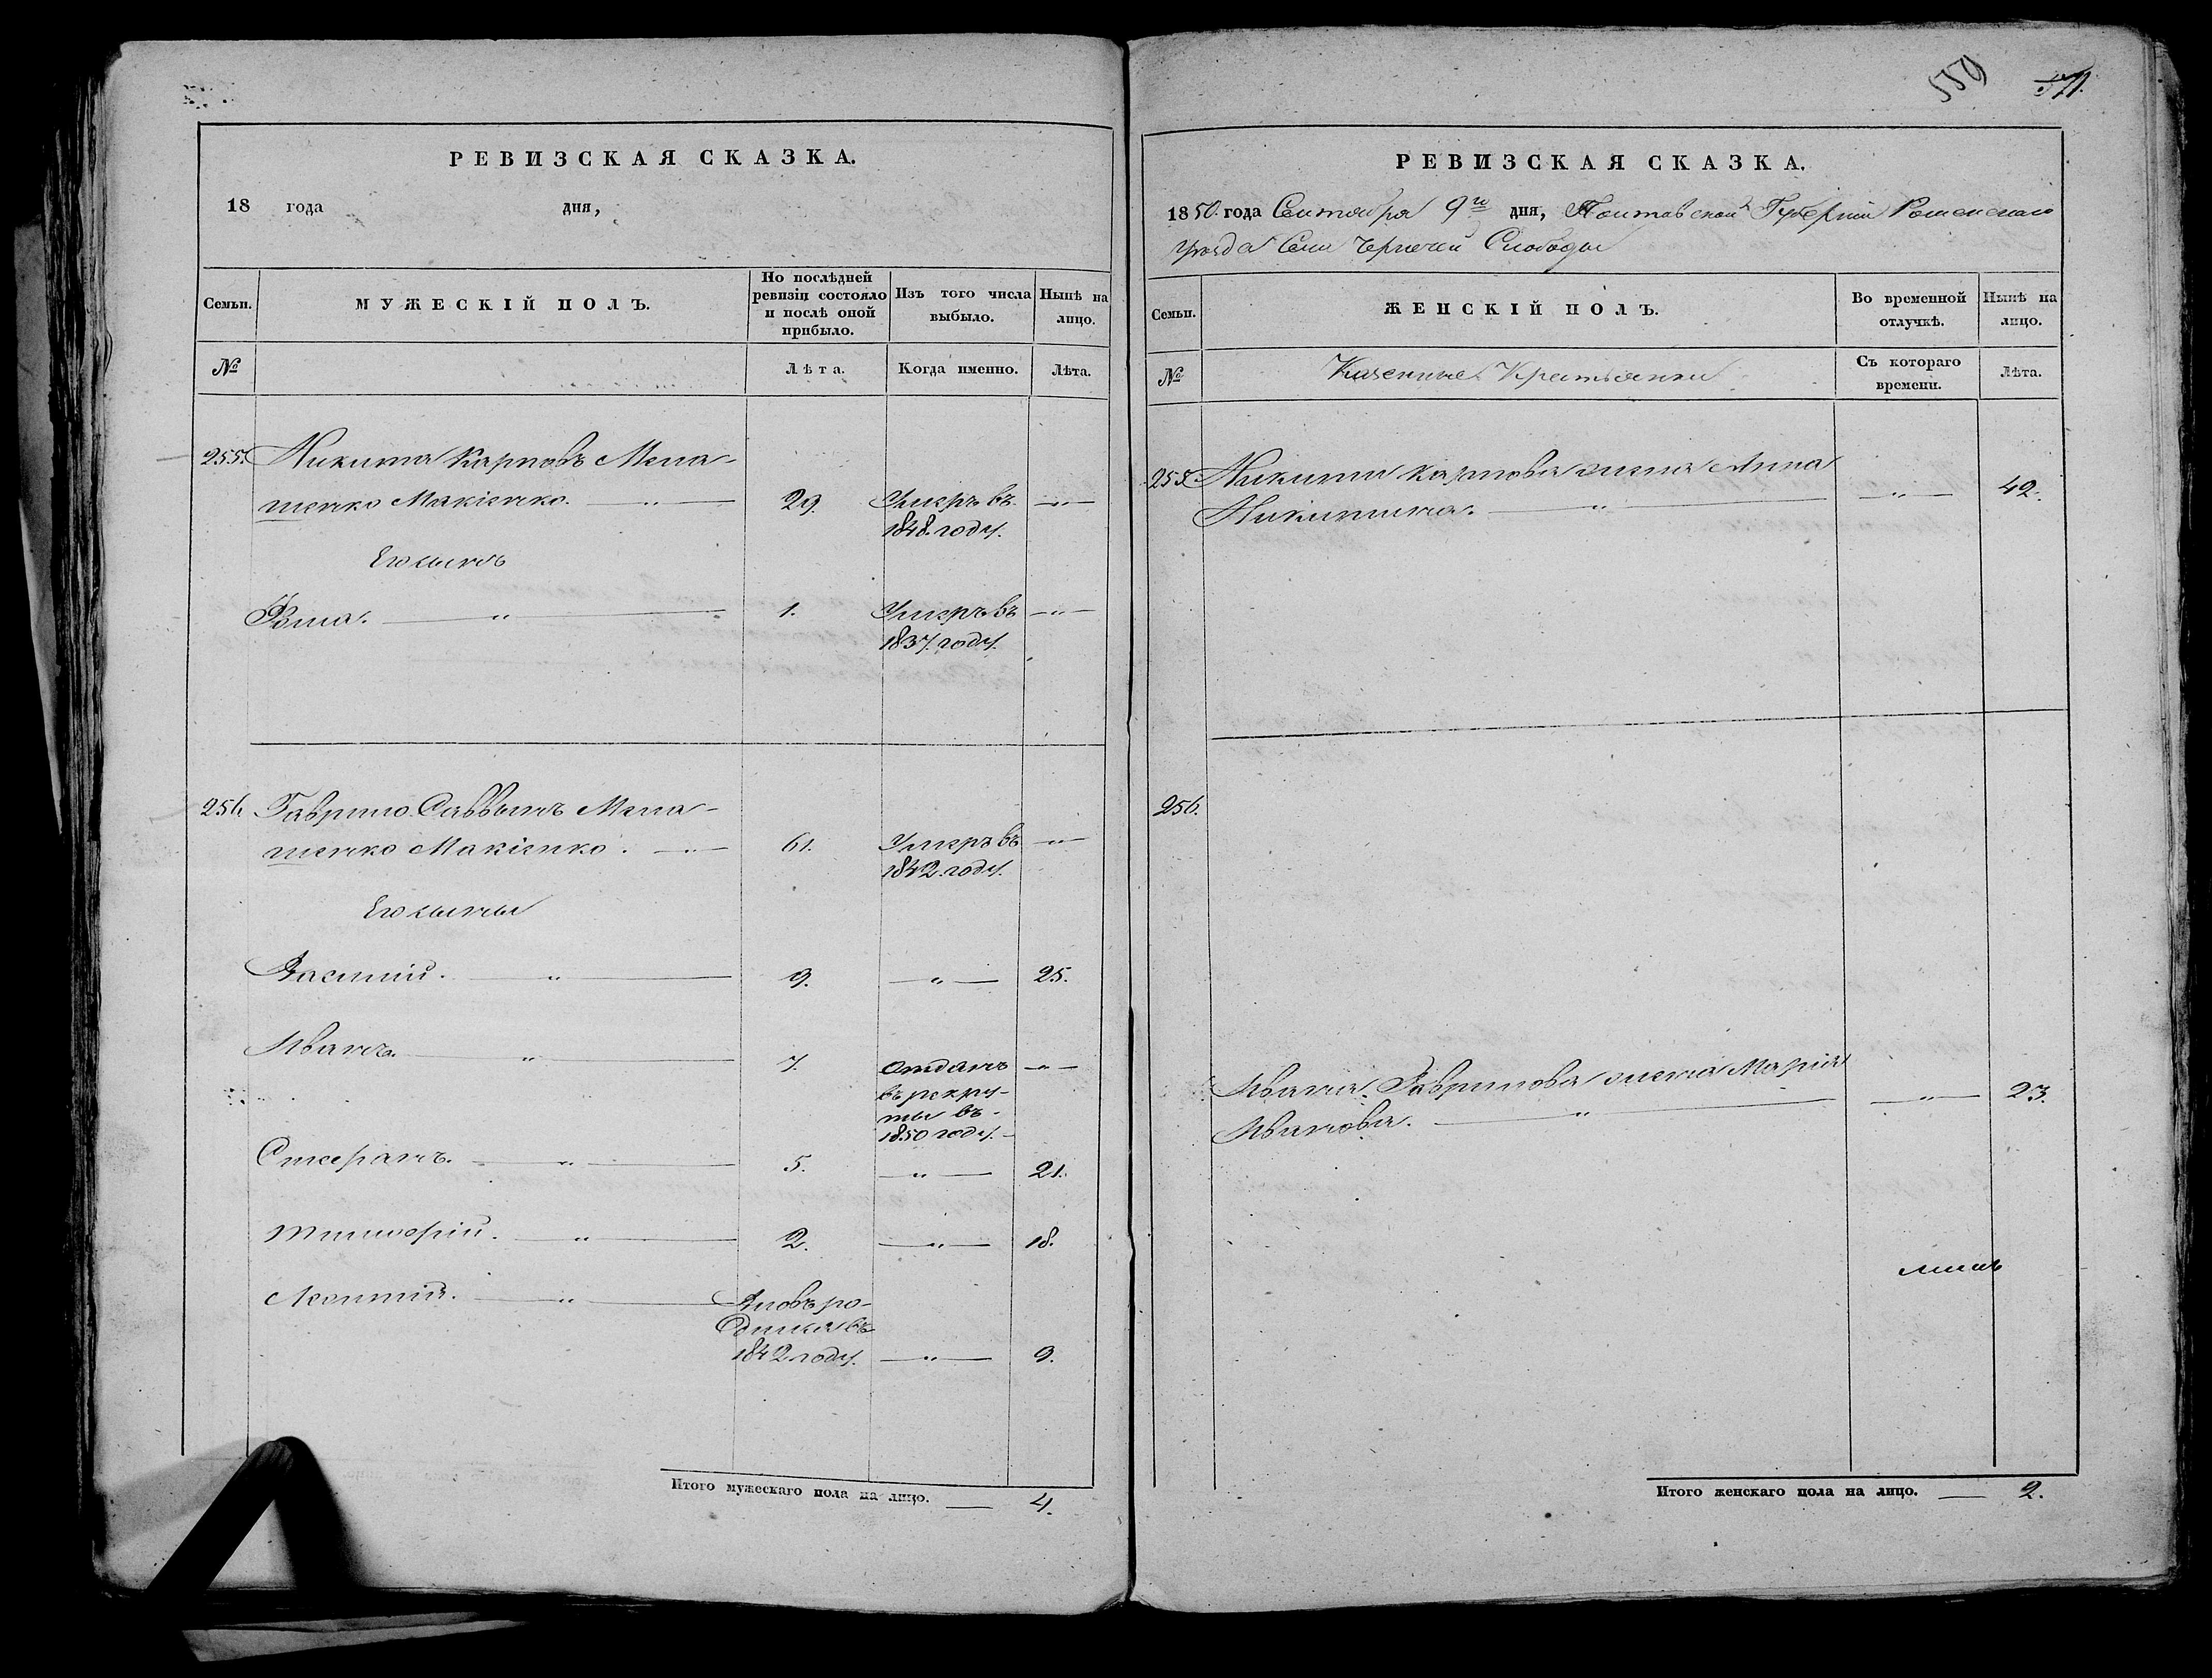 РЕВИЗСКАЯ СКАЗКА.
18 года дня,
Семьи.
МУЖЕСКІЙ ПОЛЪ.
По послѣдней ревизіи состояло и послѣ оной прибыло.
Изъ того числа выбыло.
Нынѣ на лицо.
№
Лѣта.
Когда именно.
Лѣта.
255. Никита Карповъ Мена-
шенко Макіенко. 29. Умеръ въ
1848. году.
Его сынъ
Фома. 1. Умеръ въ
1837. году.
256. Гаврило Саввинъ Мена-
шенко Макіенко. 61. Умеръ въ
1842. году.
Его сыны
Василій. 9. 25.
Иванъ. 7. Отданъ
въ рекру-
ты въ
1850 году.
Стефанъ. 5. 21.
Тимофій. 2. 18.
Леонтій. Вновь ро-
дился въ
1842 году. 9.
Итого мужескаго пола на лицо. 4.
559 571.
РЕВИЗСКАЯ СКАЗКА.
1850. года Сентября 9го дня, Полтавской Губерніи Роменскаго
уѣзда Села Чернечей Слободы
Семьи.
ЖЕНСКІЙ ПОЛЪ.
Во временной отлучкѣ.
Нынѣ на лицо.
№
Казенные Крестьянки
Съ котораго времени.
Лѣта.
255. Никиты Карпова жена Анна
Никитина. 42.
256.
Ивана Гаврилова жена Марія
Иванова. 23.
Итого женскаго пола на лицо. 2.